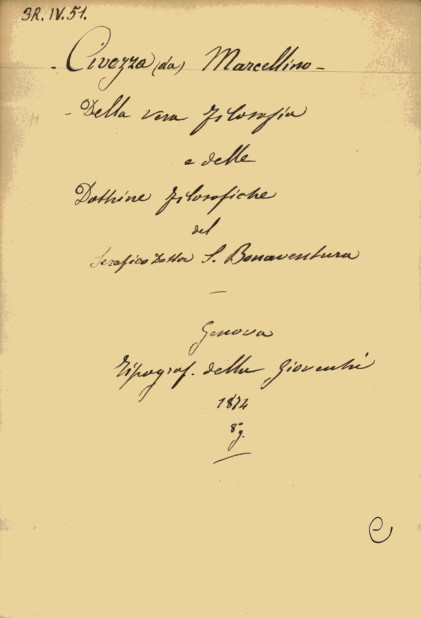 BR. IV. 51.
- Civezza (da) Marcellino -
- Della vera Filosofia
e delle
Dottrine Filosofiche
del
Serafico Dottor S. Bonaventura
—
Genova
Tipograf. della Gioventù
1874
8º g.
C